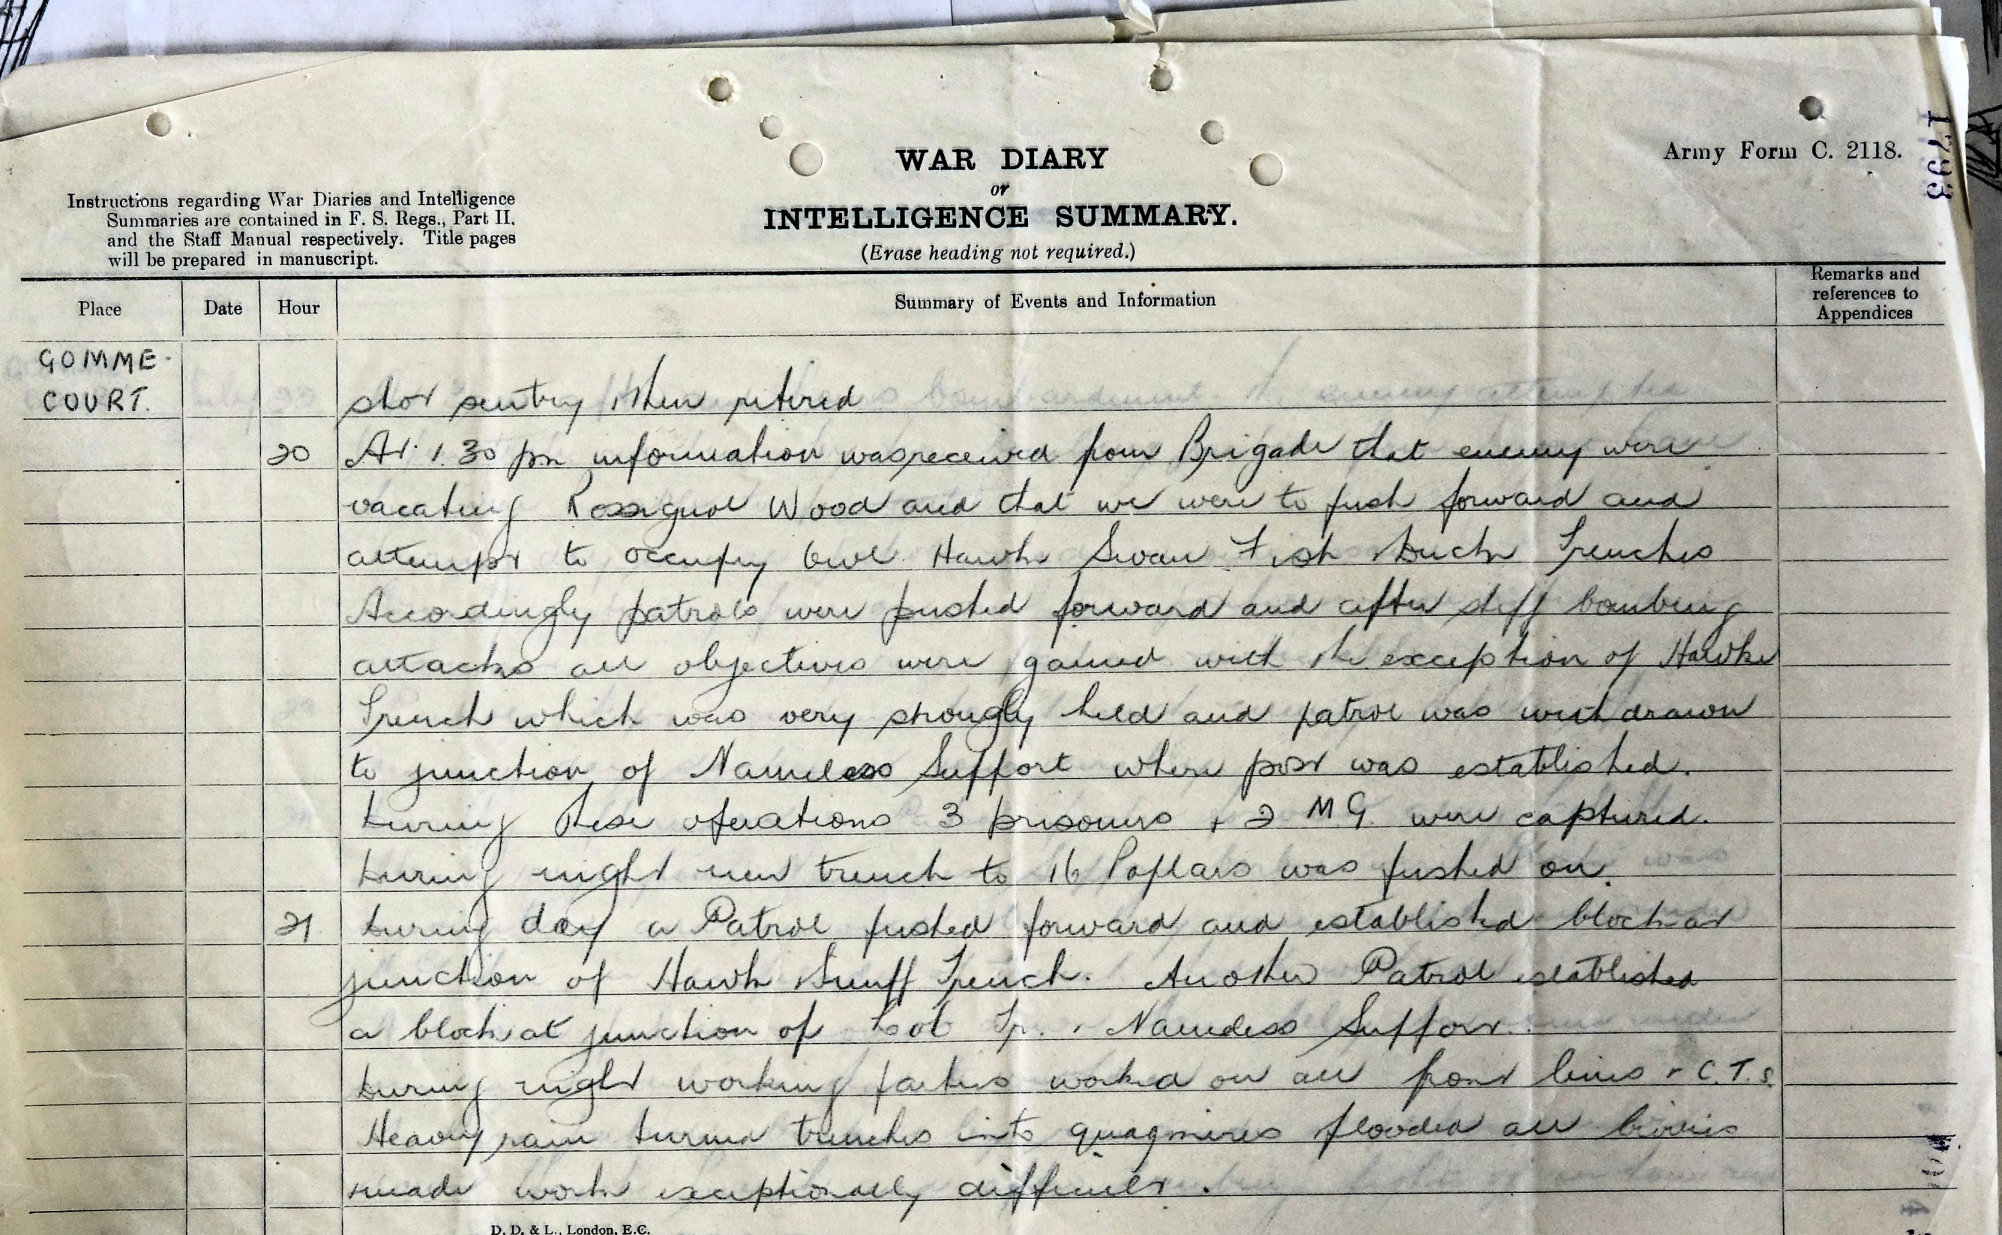 1793
Army Form C. 2118.
WAR DIARY
or
INTELLIGENCE SUMMARY.
(Erase heading not required.)
Instructions regarding War Diaries and Intelligence
Summaries are contained in F. S. Regs., Part II.
and the Staff Manual respectively. Title pages
will be prepared in manuscript.
Place Date Hour Summary of Events and Information Remarks and references to Appendices
GOMME-
COURT. shot sentry & then retired
20 At 1.30 pm information was received from Brigade that enemy were
vacating Rossignol Wood and that we were to push forward and
attempt to occupy Owl Hawk Swan Fish & Duck Trenches
Accordingly patrols were pushed forward and after stiff bombing
attacks all objectives were gained with the exception of Hawke
Trench which was very strongly held and patrol was withdrawn
to junction of Nameless Support where post was established.
During these operations 3 prisoners + 2 M.G. were captured.
During night new trench to 16 Poplars was pushed on.
21 During day a Patrol pushed forward and established block at
junction of Hawk & Snuff Trench. Another Patrol established
a block at junction of Tr. + Nameless Support.
During night working parties worked on all front lines + C.T.s.
Heavy rain turned trenches into quagmires flooded all bivvies
made work exceptionally difficult.
D. D. & L., London, E.C.